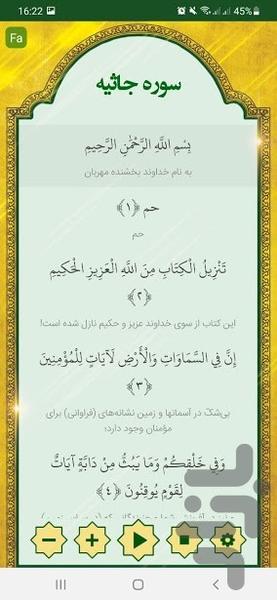 16:22 45%
Fa
سوره جاثیه
بِسْمِ اللَّهِ الرَّحْمَٰنِ الرَّحِيمِ
به نام خداوند بخشنده مهربان
حم ﴿١﴾
حم
تَنْزِيلُ الْكِتَابِ مِنَ اللَّهِ الْعَزِيزِ الْحَكِيمِ
﴿٢﴾
این کتاب از سوی خداوند عزیز و حکیم نازل شده است!
إِنَّ فِي السَّمَاوَاتِ وَالْأَرْضِ لَآيَاتٍ لِلْمُؤْمِنِينَ
﴿٣﴾
بی‌شک در آسمانها و زمین نشانه‌های (فراوانی) برای
مؤمنان وجود دارد؛
وَفِي خَلْقِكُمْ وَمَا يَبُثُّ مِنْ دَابَّةٍ آيَاتٌ
لِقَوْمٍ يُوقِنُونَ ﴿٤﴾
بازار